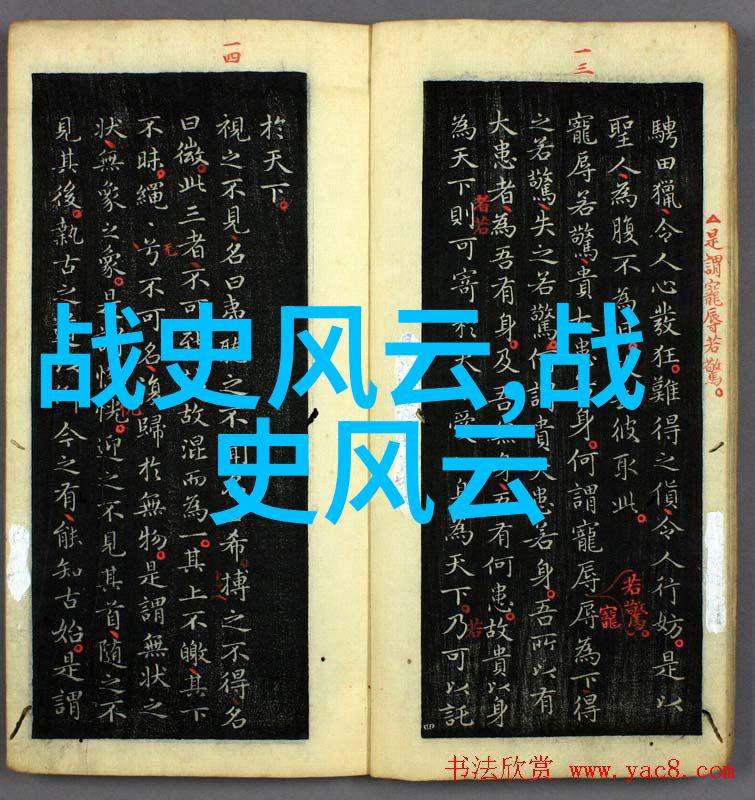 一三
騁田獵令人心發狂。難得之貨令人行妨。是以
聖人為腹不為 彼取此。
寵辱若驚貴大患 身。何謂寵辱辱為下得
之若驚失之若驚。何謂貴大患若身。吾所以有
大患者為吾有身。及吾無身 有何患。故貴以身
為天下則可寄於天 愛 身為天下。乃可以託
△是謂寵辱若驚。
者若
若驚。
寵
若
一四
於天下。
視之不見名曰夷聽之不聞 希。搏之不得名
曰微。此三者不可致 故混而為一。其上不皦其下
不昧。繩〻兮不可名復歸於無物。是謂無状之
状無象之象。是 惚恍。迎之不見其首随之不
見其後。執古之道 今之有。能知古始。是謂
战史风云,战
史风云
书法欣赏 www.yac8.com